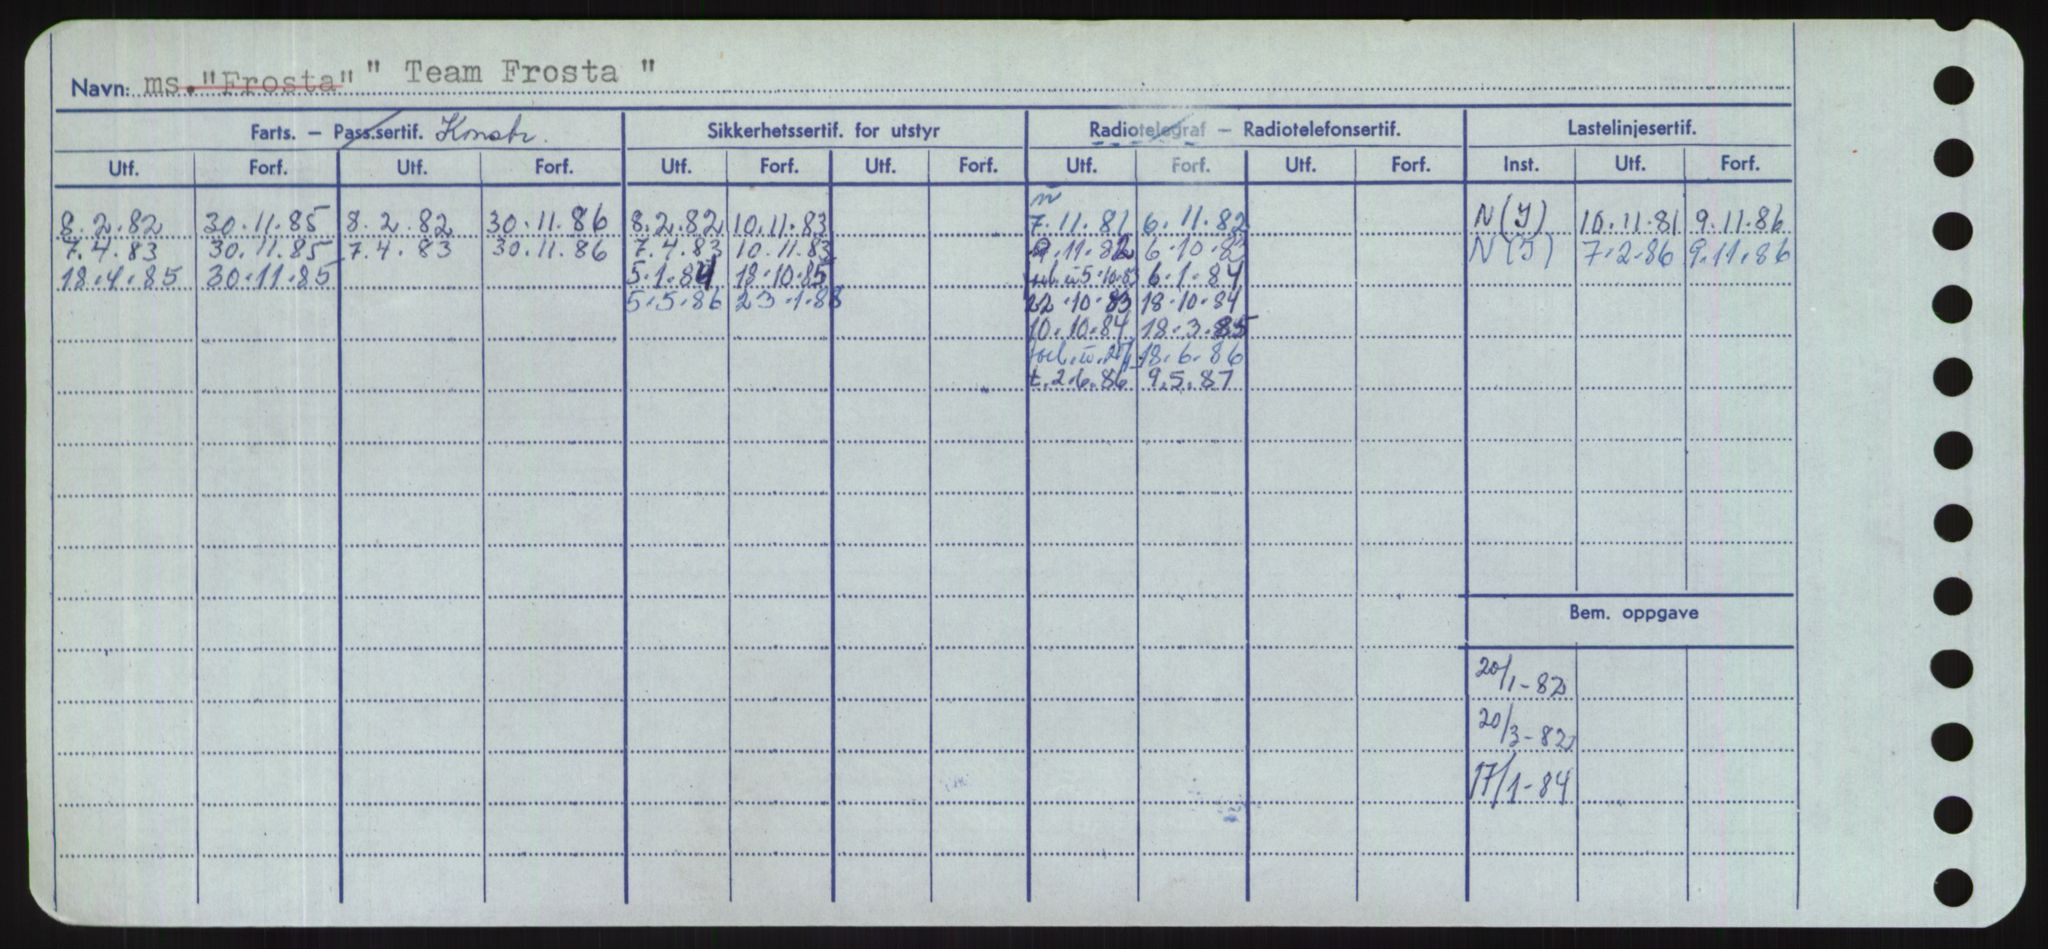 Navn: ms. "Frosta" " Team Frosta "
Farts. – Pass.sertif. Konstr. Sikkerhetssertif. for utstyr Radiotelegraf – Radiotelefonsertif. Lastelinjesertif.
Utf. Forf. Utf. Forf. Utf. Forf. Utf. Forf. Utf. Forf. Utf. Forf. Inst. Utf. Forf.
8.2.82 30.11.85 8.2.82 30.11.86 8.2.82 10.11.83 7.11.81 6.11.82 N(J) 10.11.81 9.11.86
7.4.83 30.11.85 7.4.83 30.11.86 7.4.83 10.11.83 11.82 6.10.83 N(J) 7.2.86 9.11.86
18.4.85 30.11.85 5.1.84 18.10.85 5.10.83 6.1.84
5.5.86 23.1.88 22.10.83 18.10.84
10.10.84 18.3.85
18.6.86
t.2.6.86 9.5.87
Bem. oppgave
20/1-82
20/3-82
17/1-84